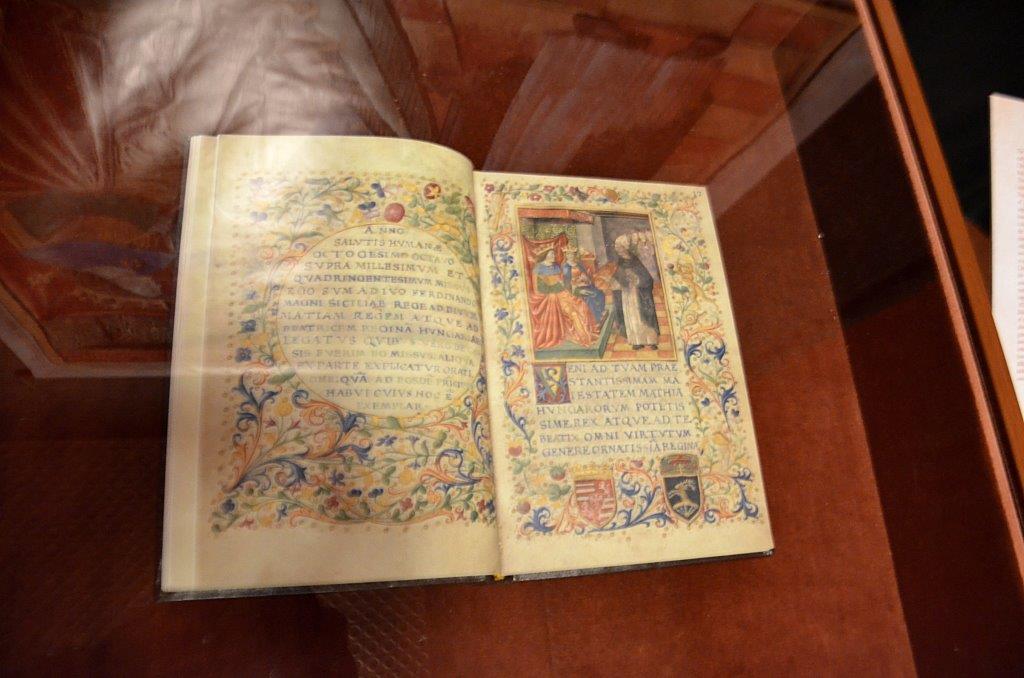 ANNO
SALVTIS HVMANÆ
OCTOGESIMO OCTAVO
SVPRA MILLESIMVM ET
QVADRINGENTESIMVM
EGO SVM ADIVO FERDINANDO
MAGNI SICILIAE REGE AD DIVVM
MATIAM REGEM ATQVE AD
BEATRICEM REGINĀ HVNGARIAE
LEGATVS QVIB
SIS FVERIM DOMISSVS ALIQVA
EX PARTE EXPLICATVR ORATI
ONE QVĀ AD
HABVI CVIVS HOC Ē
EXEMPLAR
VENI AD TVAM PRAE
STANTISSIMAM MA
IESTATEM MATHIA
HVNGARORVM POTĒTIS
SIME REX ATQVE AD TE
BEATIX OMNI VIRTVTVM
GENERE ORNATISSĪA REGINA